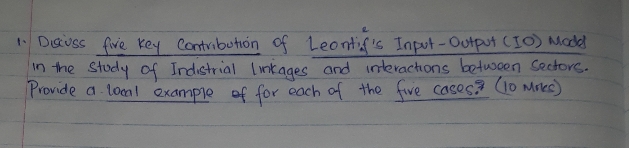 1. Discuss five key Contribution of Leontief's Input-Output (IO) Model
in the study of Indistrial linkages and interactions between sectors.
Provide a local example of for each of the five cases? (10 Mrks)